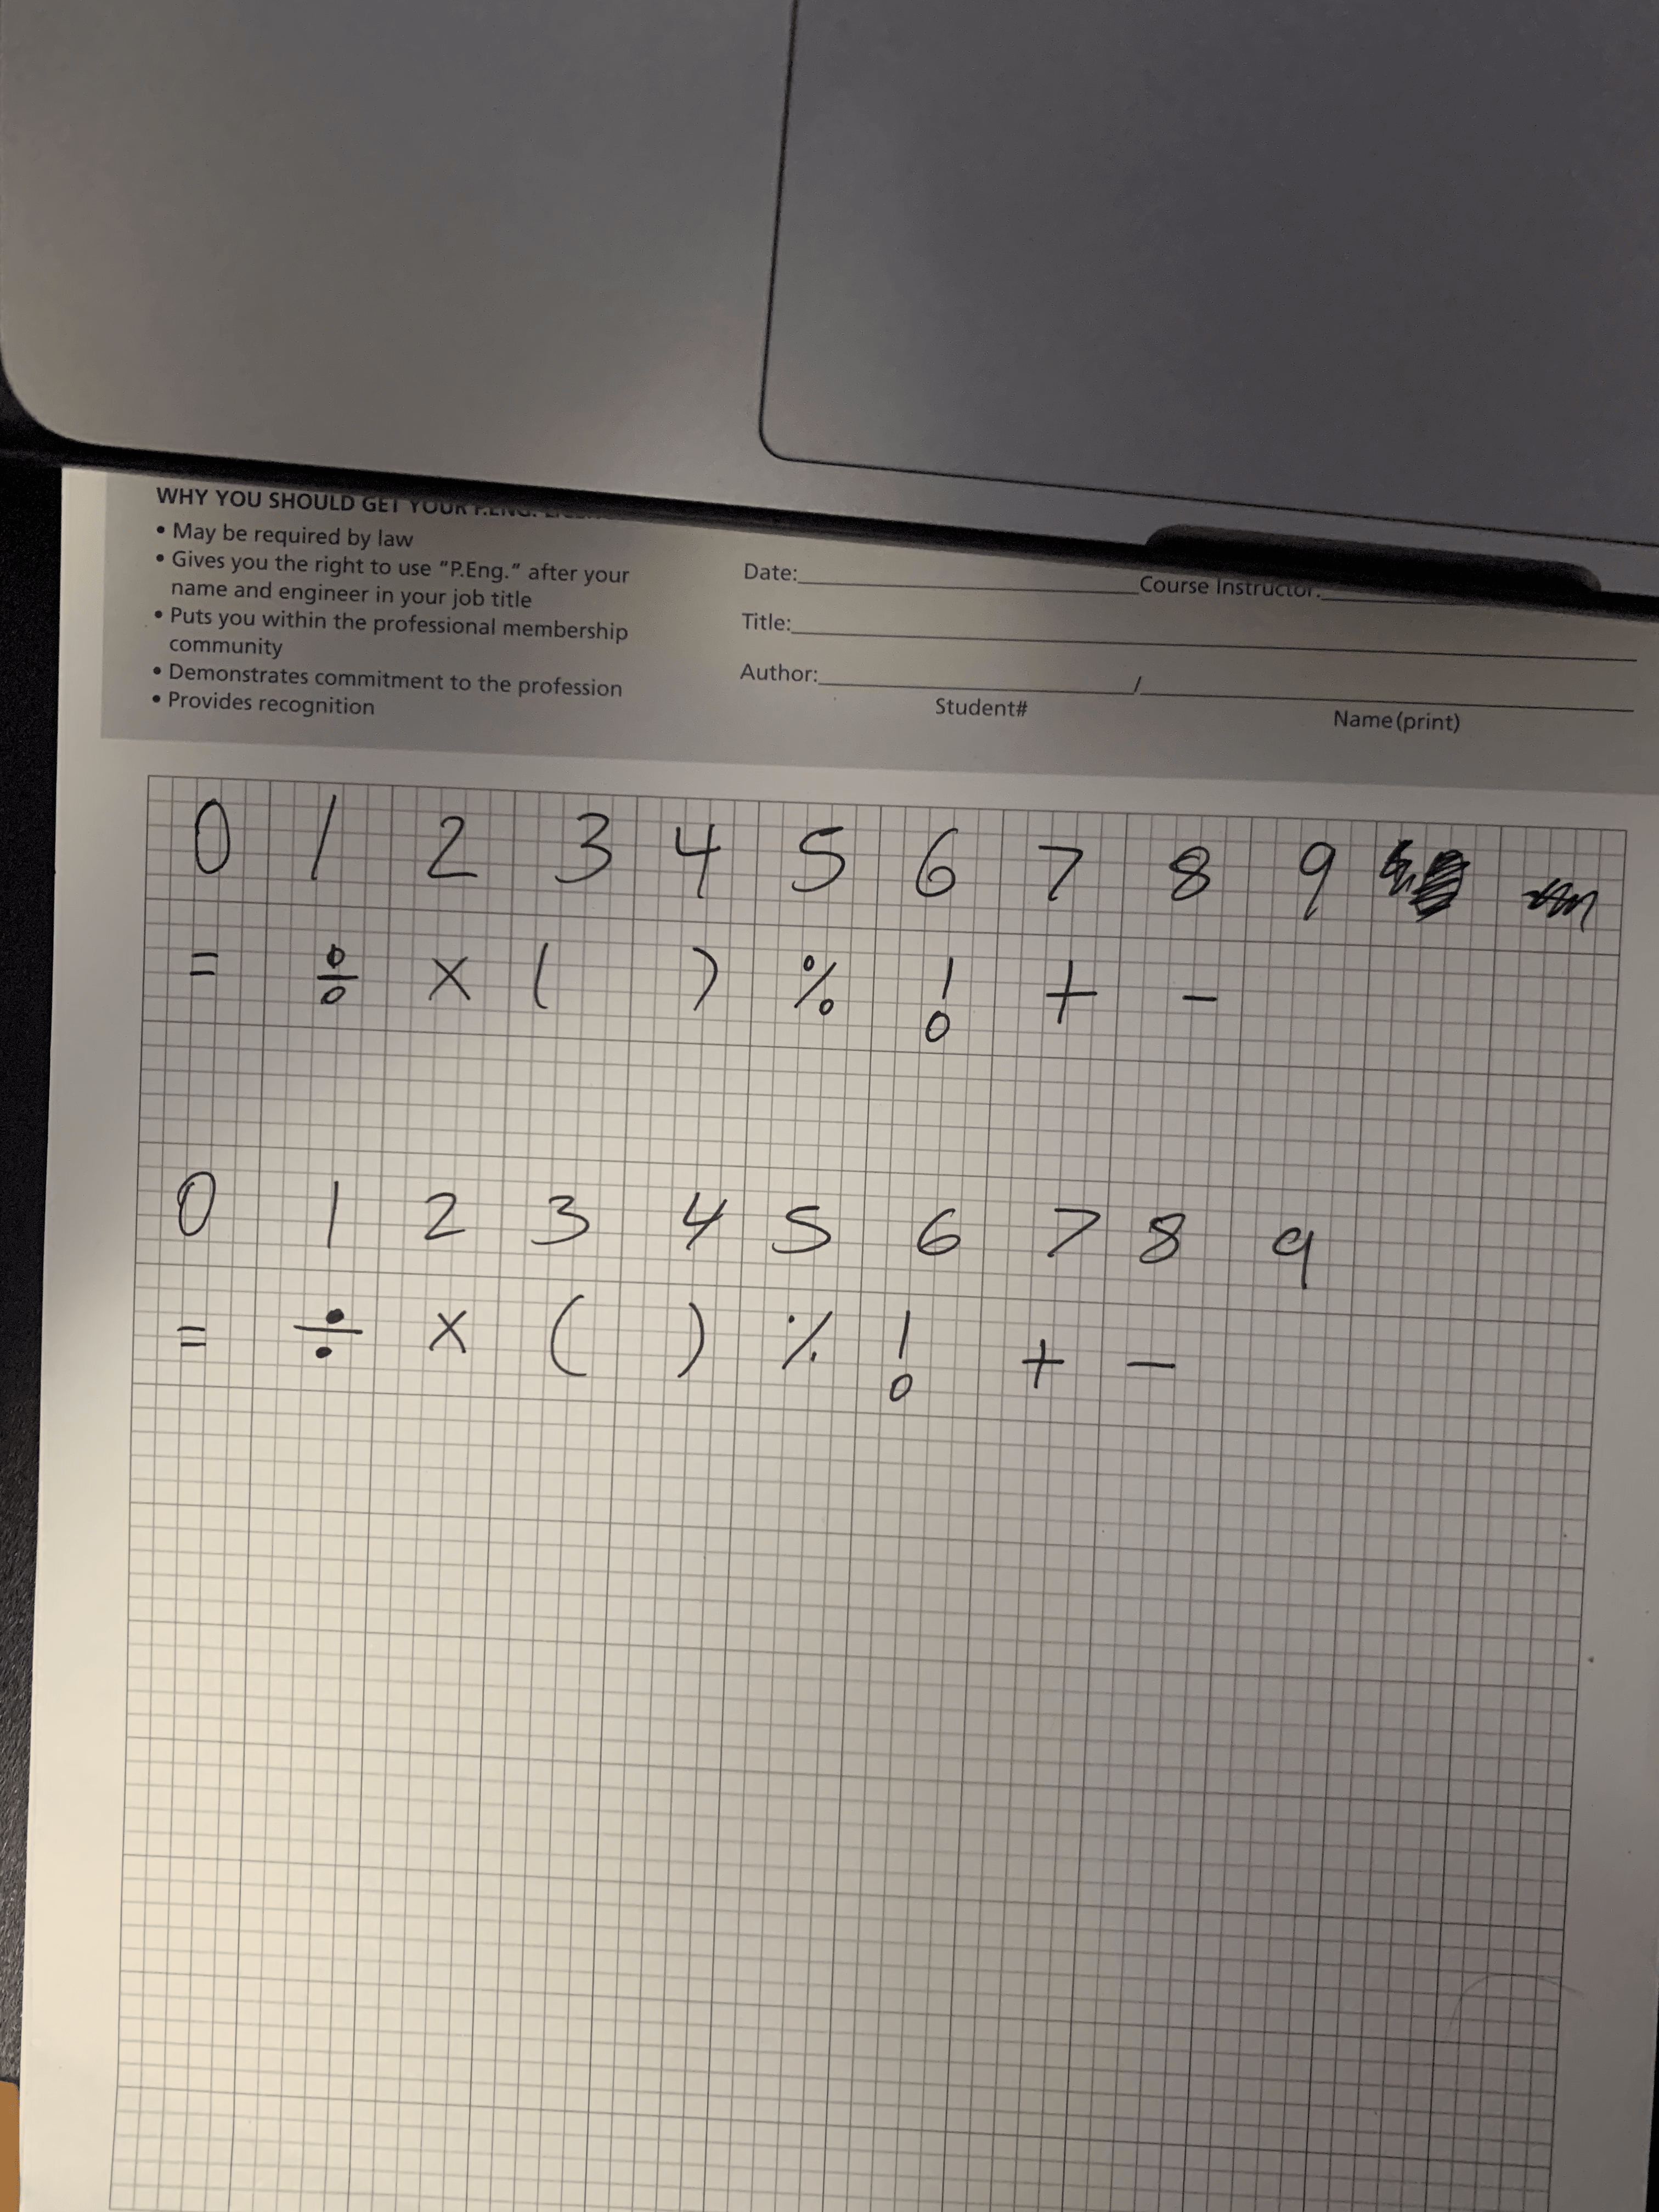 WHY YOU SHOULD GET YOUR P.ENG.
• May be required by law
• Gives you the right to use “P.Eng.” after your
name and engineer in your job title
• Puts you within the professional membership
community
• Demonstrates commitment to the profession
• Provides recognition
Date: Course Instructor:
Title:
Author: /
Student# Name (print)
0 1 2 3 4 5 6 7 8 9
= ÷ × ( ) % ! + -
0 1 2 3 4 5 6 7 8 9
= ÷ × ( ) % ! + -